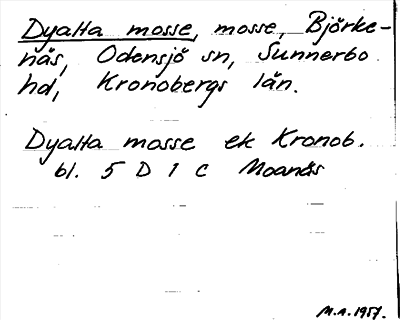 Dyalta mosse, mosse, Björke-
näs, Odensjö sn, Sunnerbo
hd, Kronobergs län.
Dyalta mosse ek Kronob.
bl. 5 D 1 c Moanäs
M.A. 1957.